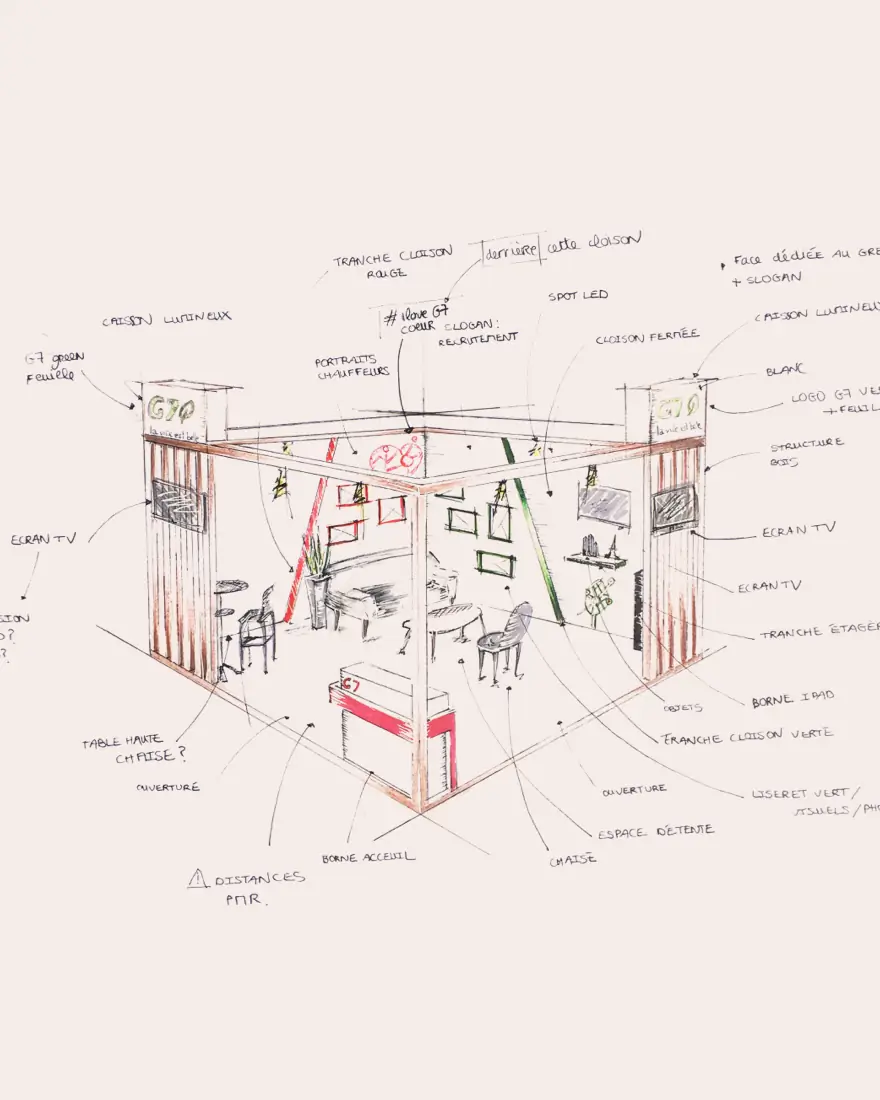 TRANCHE CLOISON
ROUGE
derrière cette cloison
Face dédiée au GRE
+ SLOGAN
CAISSON LUMINEUX
# ilove G7
COEUR SLOGAN:
RECRUTEMENT
SPOT LED
CAISSON LUMINEUX
G7 green
Feuille
PORTRAITS
CHAUFFEURS
CLOISON FERMÉE
BLANC
LOGO G7 VE
+ FEUIL
G7
la ville est belle
G7
la ville est belle
STRUCTURE
BOIS
G7
ECRAN TV
ECRAN TV
ECRAN TV
SION
?
?
TRANCHE ÉTAGÈR
G7
OBJETS
BORNE IPAD
TABLE HAUTE
CHAISE?
TRANCHE CLOISON VERTE
OUVERTURE
OUVERTURE
LISERET VERT/
VISUELS/PHO
ESPACE DÉTENTE
BORNE ACCEUIL
CHAISE
⚠ DISTANCES
PMR.